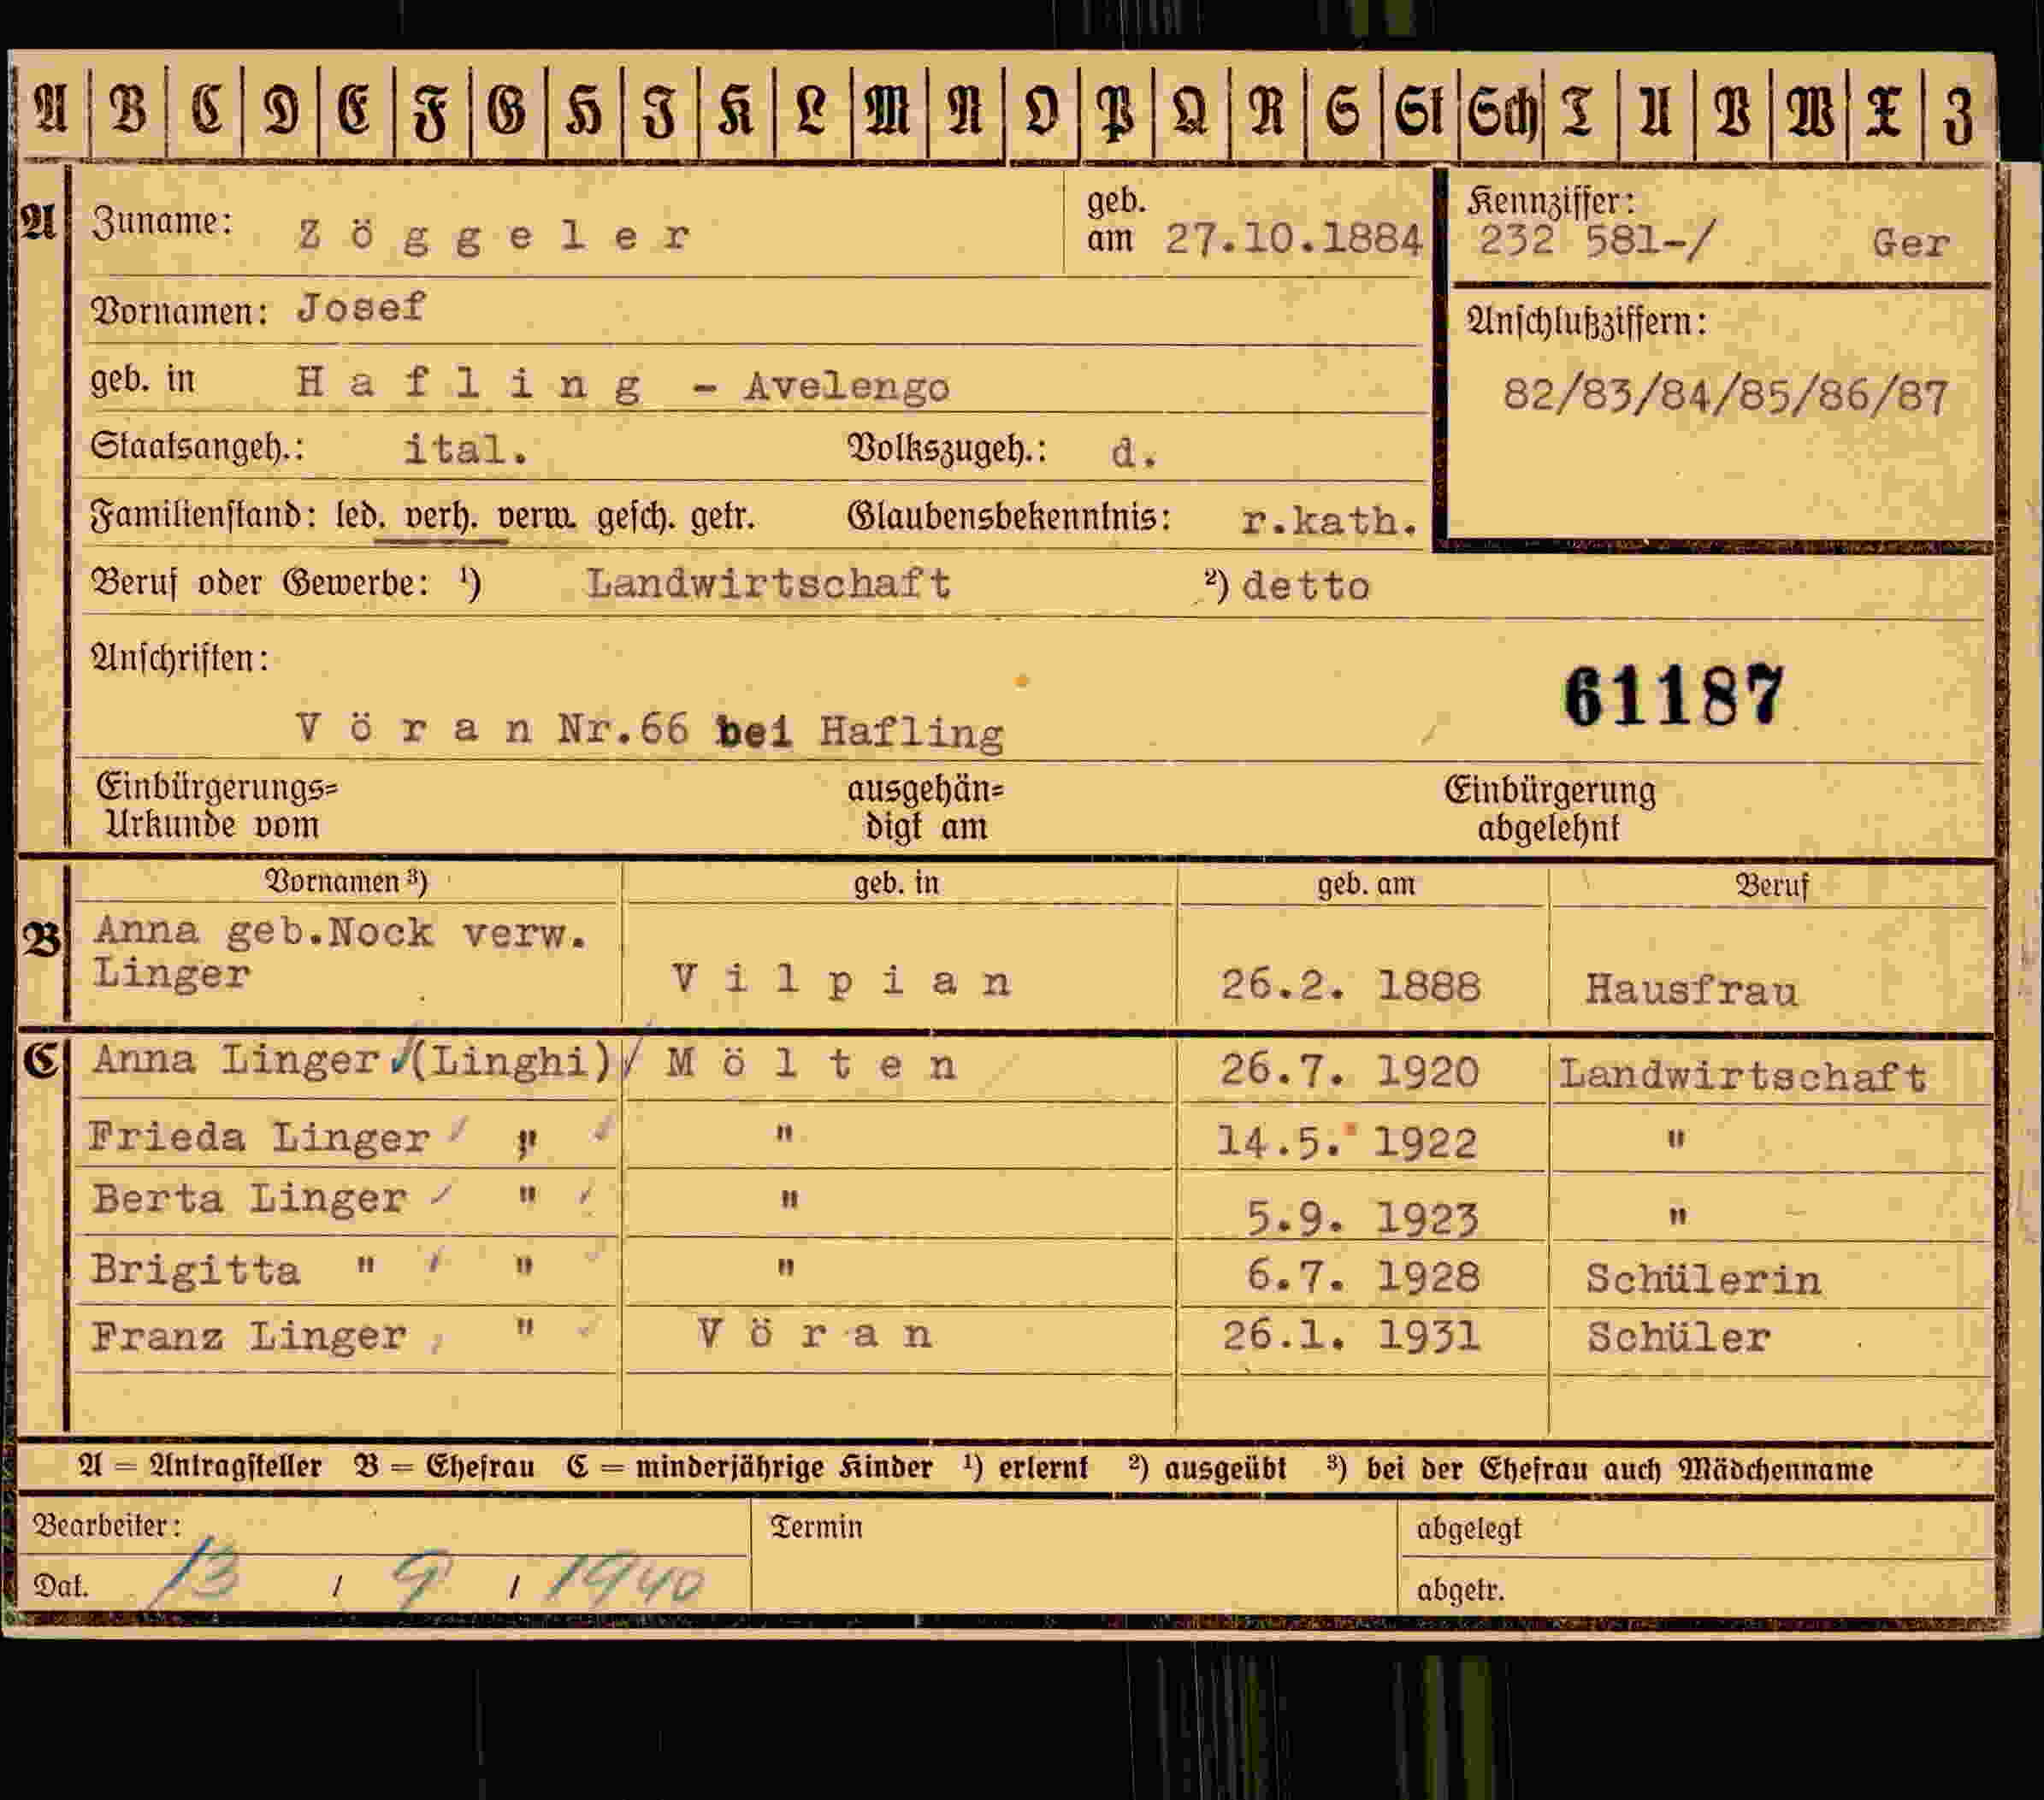 A B C D E F G H I K L M N O P Q R S St Sch T U V W X Z
A Zuname: Zöggeler geb. am 27.10.1884
Kennziffer:
232 581-/ Ger
Vornamen: Josef
Anschlußziffern:
82/83/84/85/86/87
geb. in Hafling - Avelengo
Staatsangeh.: ital. Volkszugeh.: d.
Familienstand: led. verh. verw. gesch. getr. Glaubensbekenntnis: r.kath.
Beruf oder Gewerbe: ¹) Landwirtschaft ²) detto
Anschriften:
61187
Vöran Nr.66 bei Hafling
Einbürgerungs= ausgehän= Einbürgerung
Urkunde vom digt am abgelehnt
Vornamen ³) geb. in geb. am Beruf
B Anna geb.Nock verw.
Linger Vilpian 26.2. 1888 Hausfrau
C Anna Linger (Linghi) Mölten 26.7. 1920 Landwirtschaft
Frieda Linger " " 14.5. 1922 "
Berta Linger " " 5.9. 1923 "
Brigitta " " " 6.7. 1928 Schülerin
Franz Linger " Vöran 26.1. 1931 Schüler
A = Antragsteller B = Ehefrau C = minderjährige Kinder ¹) erlernt ²) ausgeübt ³) bei der Ehefrau auch Mädchenname
Bearbeiter: Termin abgelegt
Dat. 13 / 9 / 1940 abgetr.